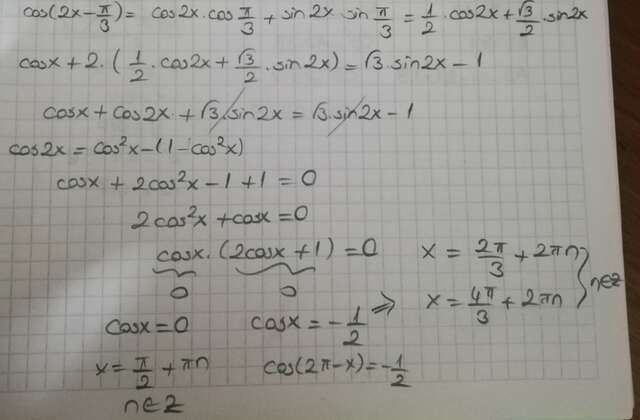 cos(2x-π/3) = cos2x.cos π/3 + sin2x.sin π/3 = 1/2.cos2x + √3/2.sin2x
cosx + 2.(1/2.cos2x + √3/2.sin2x) = √3.sin2x - 1
cosx + cos2x + √3.sin2x = √3.sin2x - 1
cos2x = cos²x - (1 - cos²x)
cosx + 2cos²x - 1 + 1 = 0
2cos²x + cosx = 0
cosx.(2cosx + 1) = 0
0 0
cosx = 0
x = π/2 + πn
n∈Z
cosx = -1/2 ⇒
cos(2π-x) = -1/2
x = 2π/3 + 2πn
x = 4π/3 + 2πn
} n∈Z